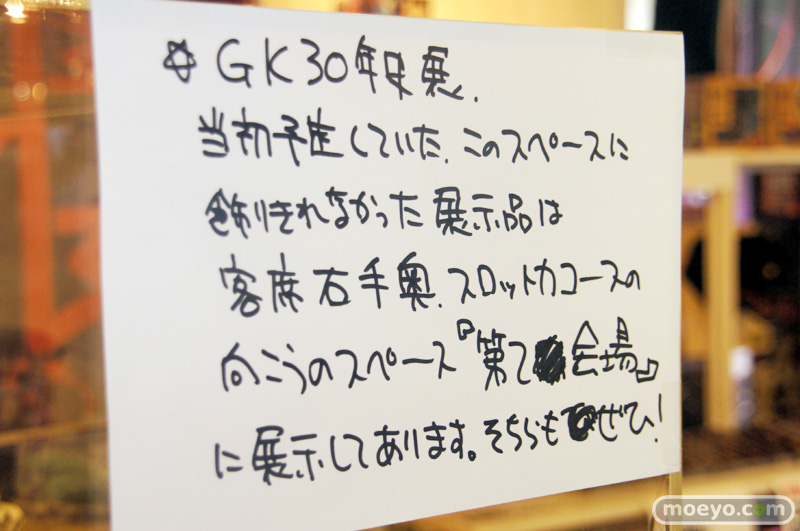 ☆GK30年史展、
当初予定していた、このスペースに
飾りきれなかった展示品は
客席右手奥、スロットカーコースの
向こうのスペース『第2会場』
に展示してあります。そちらもぜひ!
moeyo.com